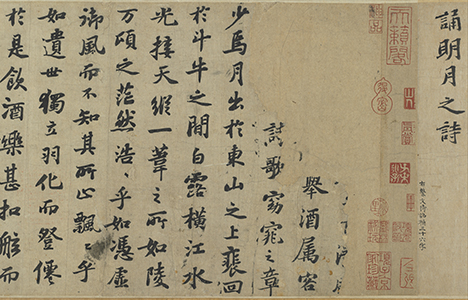 誦明月之詩
舉酒属客
歌窈窕之章
少焉月出於東山之上裵回
於斗牛之間白露橫江水
光接天縱一葦之所如陵
万頃之茫然浩〻乎如憑虛
御風而不知其所止飄〻乎
如遺世獨立羽化而登僊
於是飲酒樂甚扣舷而